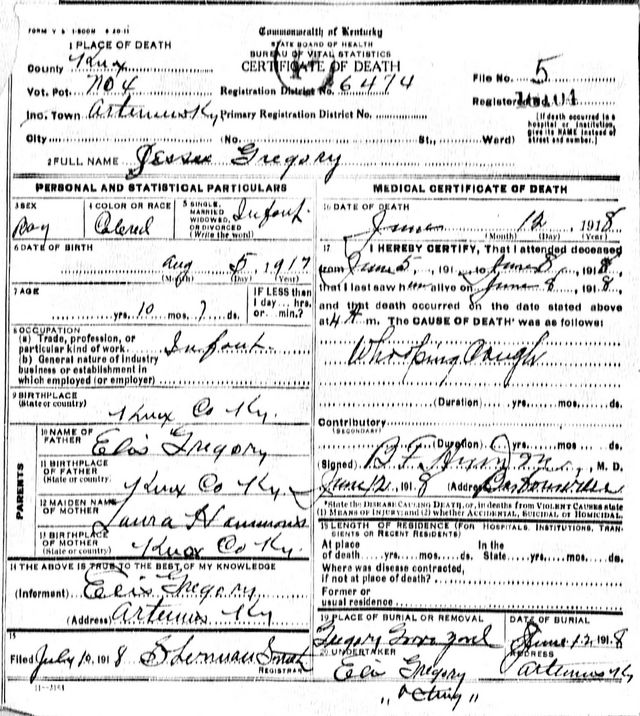 FORM V S 1-500M 6-20-11
Commonwealth of Kentucky
STATE BOARD OF HEALTH
BUREAU OF VITAL STATISTICS
CERTIFICATE OF DEATH
1 PLACE OF DEATH
County Knox
Vot. Pct. No 4 Registration District No. 6474
File No. 5
Inc. Town Artemus Ky Primary Registration District No.
Registered No.
[If death occurred in a hospital or institution, give its NAME instead of street and number.]
City (No. St., Ward)
2 FULL NAME Jessee Gregory
PERSONAL AND STATISTICAL PARTICULARS
3 SEX Boy
4 COLOR OR RACE Colered
5 SINGLE, MARRIED WIDOWED, OR DIVORCED (Write the word) Infont.
6 DATE OF BIRTH
Aug 5, 1917
(Month) (Day) (Year)
7 AGE
yrs. 10 mos. 7 ds.
IF LESS than 1 day... hrs. or... min.?
8 OCCUPATION
(a) Trade, profession, or particular kind of work Infont.
(b) General nature of industry business or establishment in which employed (or employer)
9 BIRTHPLACE
(State or country) Knox Co Ky.
PARENTS
10 NAME OF FATHER Elis Gregory
11 BIRTHPLACE OF FATHER (State or country) Knox Co Ky.
12 MAIDEN NAME OF MOTHER Laura Hammons
13 BIRTHPLACE OF MOTHER (State or country) Knox Co Ky.
14 THE ABOVE IS TRUE TO THE BEST OF MY KNOWLEDGE
(Informent) Elis Gregory
(Address) Artemus Ky
15
Filed July 10, 1918 Sherman Smith
REGISTRAR
11-3161
MEDICAL CERTIFICATE OF DEATH
16 DATE OF DEATH
June 12, 1918
(Month) (Day) (Year)
17 I HEREBY CERTIFY, That I attended deceased
from June 5, 191 to June 8, 1918,
that I last saw h alive on June 8, 1918,
and that death occurred on the date stated above
at 4 A m. The CAUSE OF DEATH* was as follows:
Whooping Cough
(Duration) yrs. mos. ds.
Contributory
(SECONDARY)
(Duration) yrs. mos. ds.
(Signed) B. F. M. D.
June 12, 1918 (Address) Barbourville
*State the DISEASE CAUSING DEATH, or, in deaths from VIOLENT CAUSES state (1) MEANS OF INJURY; and (2) whether ACCIDENTAL, SUICIDAL or HOMICIDAL.
18 LENGTH OF RESIDENCE (FOR HOSPITALS, INSTITUTIONS, TRANSIENTS OR RECENT RESIDENTS)
At place of death yrs. mos. ds. In the State yrs. mos. ds.
Where was disease contracted, if not at place of death?
Former or usual residence
19 PLACE OF BURIAL OR REMOVAL
Gregory
DATE OF BURIAL
June 12 1918
20 UNDERTAKER
Elis Gregory
"Acting"
ADDRESS
Artemus Ky